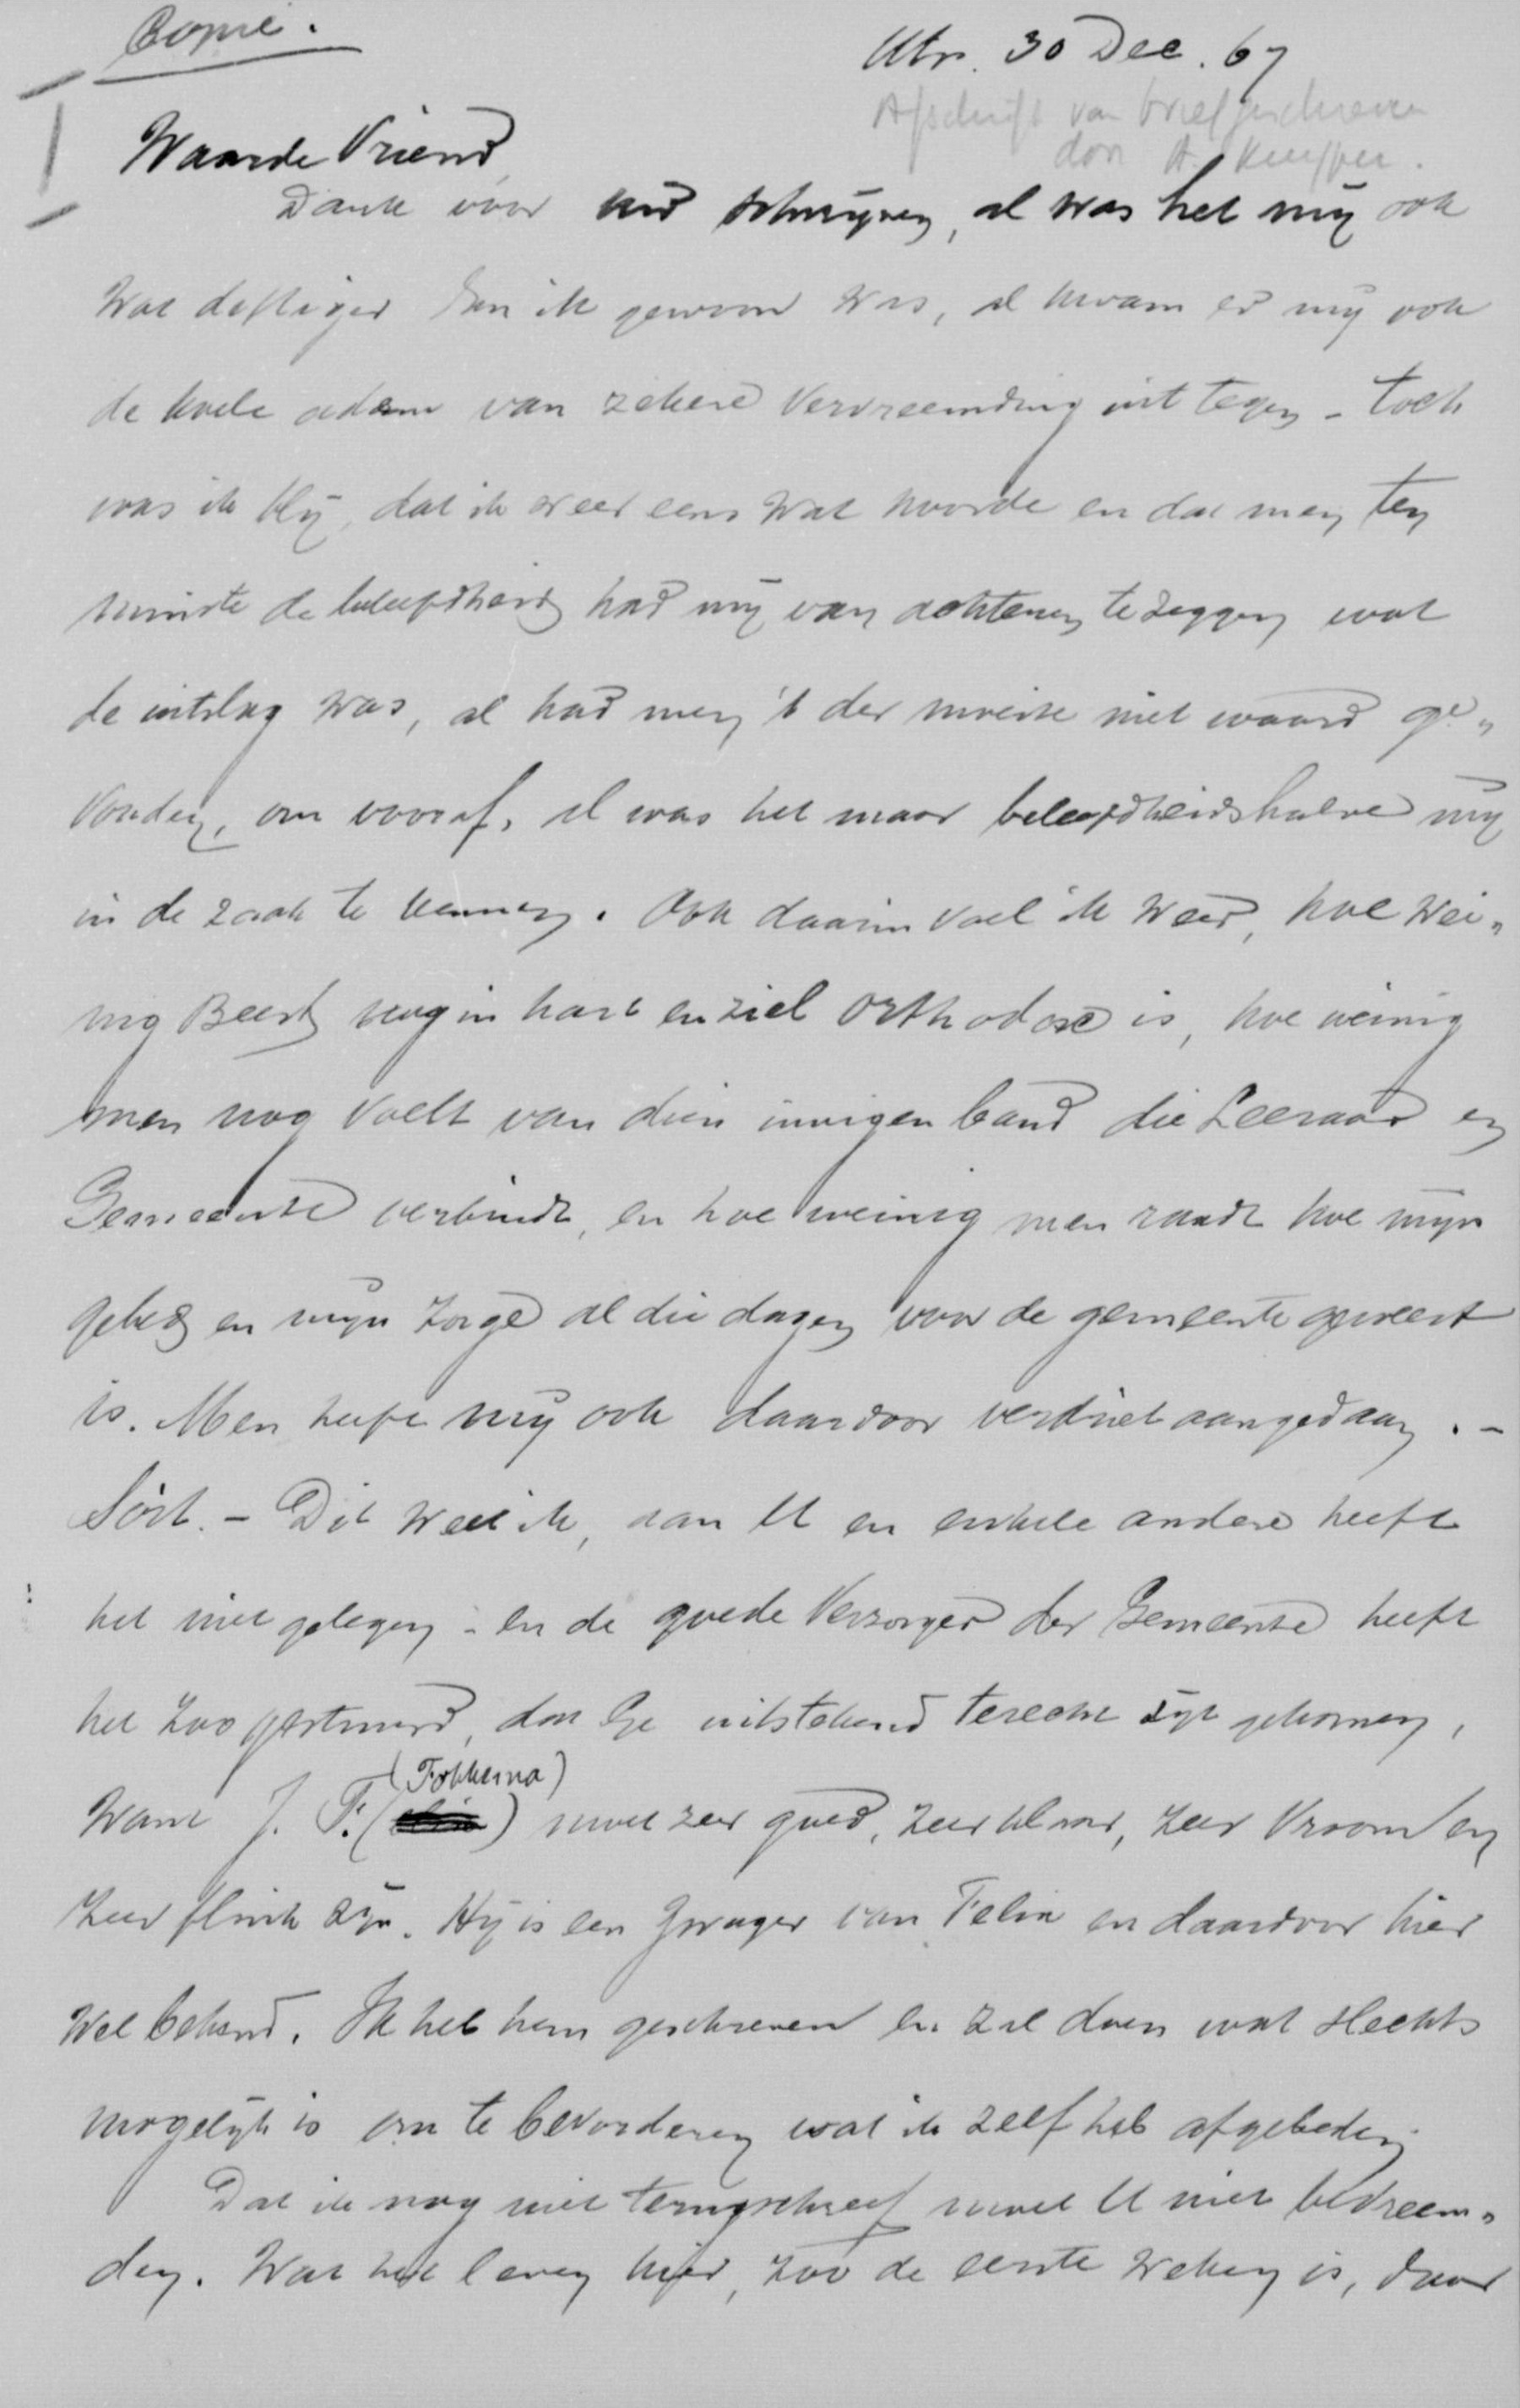 Copie.
Utr. 30 Dec. 67
Afschrift van brief geschreven
door A. Kuyper.
Waarde Vriend,
Dank voor uw schrijven, al was het mij ook
wat deftiger dan ik gewoon was, al kwam er mij ook
de koele adem van zekere vervreemding uit tegen - toch
was ik blij, dat ik weer eens wat hoorde en dat men ten
minste de beleefdheid had mij van achteren te zeggen wat
de uitslag was, al had men 't der moeite niet waard ge„
vonden, om vooraf, al was het maar beleefdheidshalve mij
in de zaak te kennen. Ook daarin voel ik weer, hoe wei„
nig Beesd nog in hart en ziel orthodox is, hoe weinig
men nog voelt van dien innigen band die Leeraar en
Gemeente verbindt, en hoe weinig men raadt hoe mijn
gebed en mijn zorge al die dagen voor de gemeente geweest
is. Men heeft mij ook daardoor verdriet aangedaan. -
Soit. - Dit weet ik, aan U en enkele andere heeft
het niet gelegen - en de goede Verzorger der Gemeente heeft
het zoo gestuurd, dat Ge uitstekend terecht zijt gekomen,
(Fokkema)
Want J. F. ( ) moet zeer goed, zeer klaar, zeer vroom en
zeer flink zijn. Hij is een zwager van Felix en daardoor hier
wel bekend. Ik heb hem geschreven en zal doen wat slechts
mogelijk is om te bevorderen wat ik zelf heb afgebeden.
Dat ik nog niet terugschreef moet U niet bevreem„
den. Wat het leven hier, zoo de eerste weken is, daar